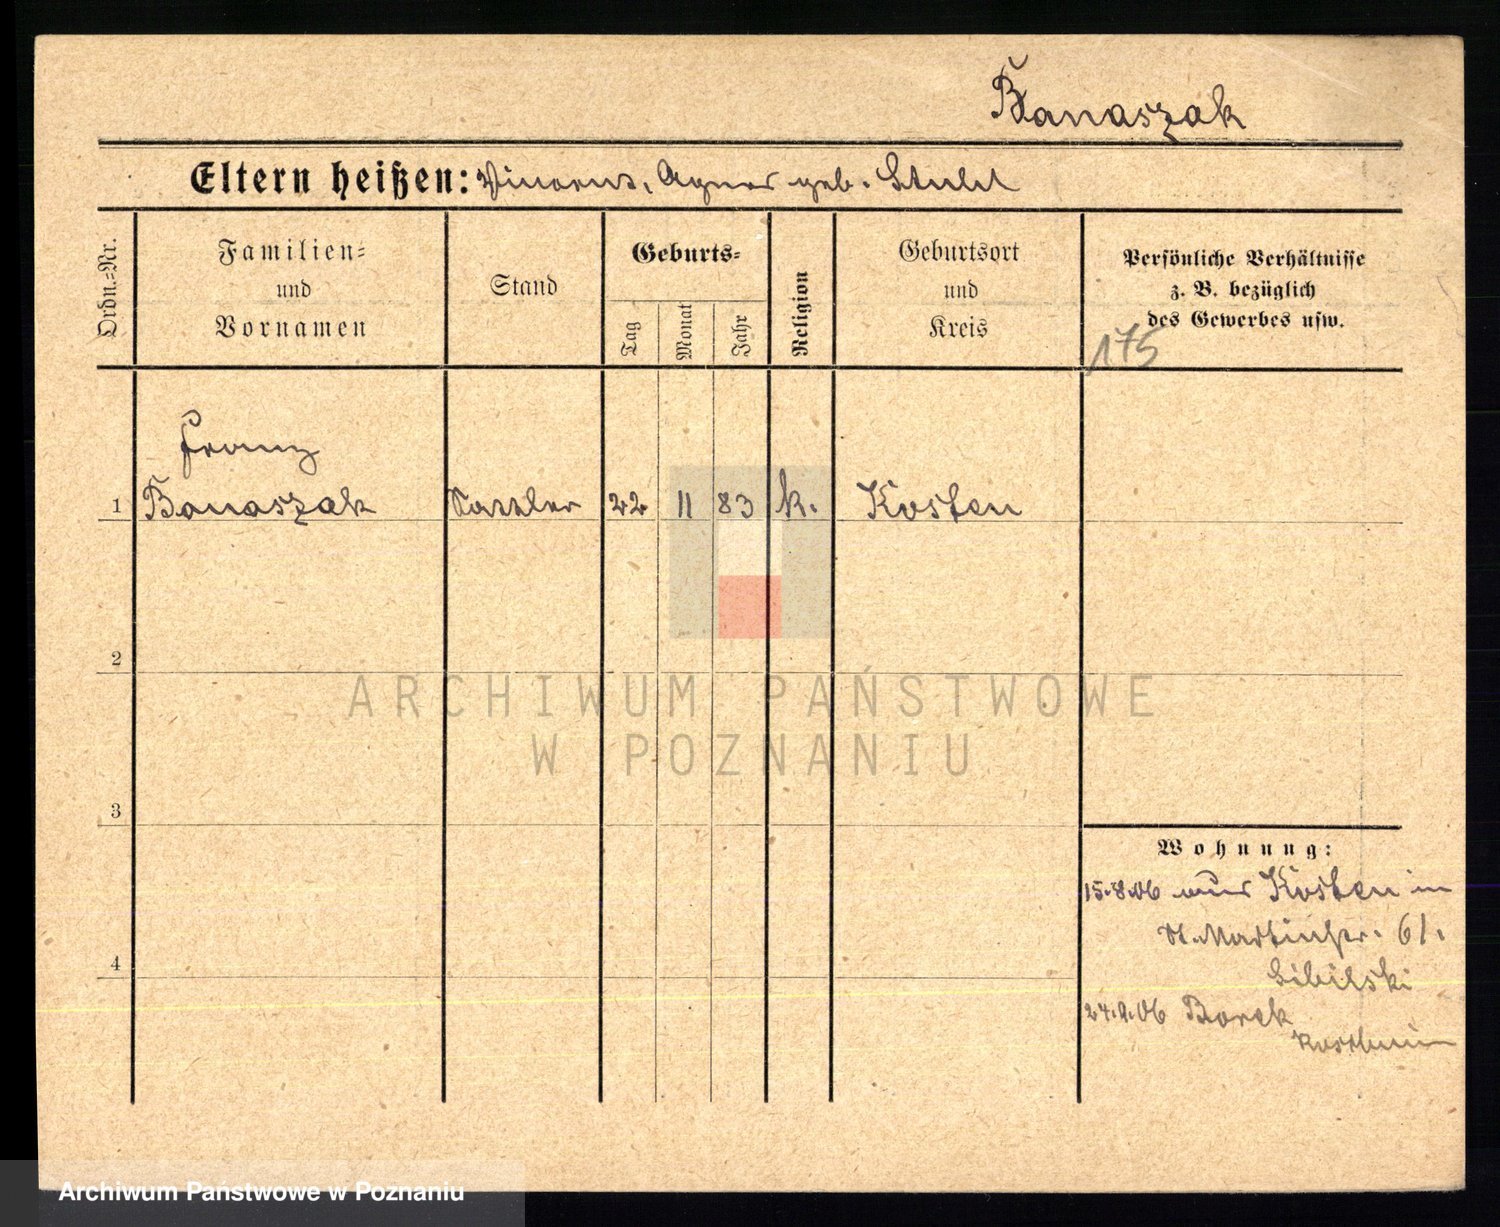 Banaszak
Eltern heißen: Vincenz, Agnes geb.
Ordn.=Nr.
Familien=
und
Vornamen
Stand
Geburts=
Tag
Monat
Jahr
Religion
Geburtsort
und
Kreis
Persönliche Verhältnisse
z. B. bezüglich
des Gewerbes usw.
175
Franz
1 Banaszak Sattler 22 11 83 k. Kosten
2
3
4
ARCHIWUM PAŃSTWOWE
W POZNANIU
Wohnung:
15.8.06 aus Kosten in
St. Martinstr. 61.
24.9.06 Borek
Archiwum Państwowe w Poznaniu